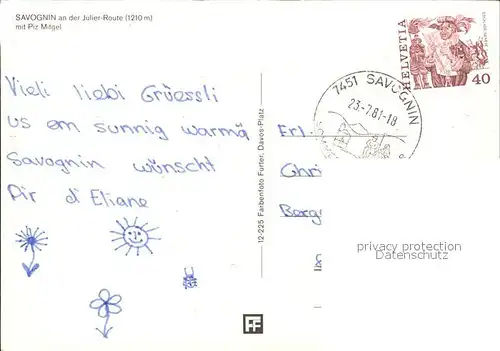 SAVOGNIN an der Julier-Route (1210 m)
mit Piz Mitgel
Vieli liebi Grüessli
us em sunnig warmä
Savognin wünscht
Dir d'Eliane
12-225 Farbenfoto Furter, Davos-Platz
HELVETIA
40
7451 SAVOGNIN
23-7.81-18
Frl.
Chri
Berg
privacy protection
Datenschutz